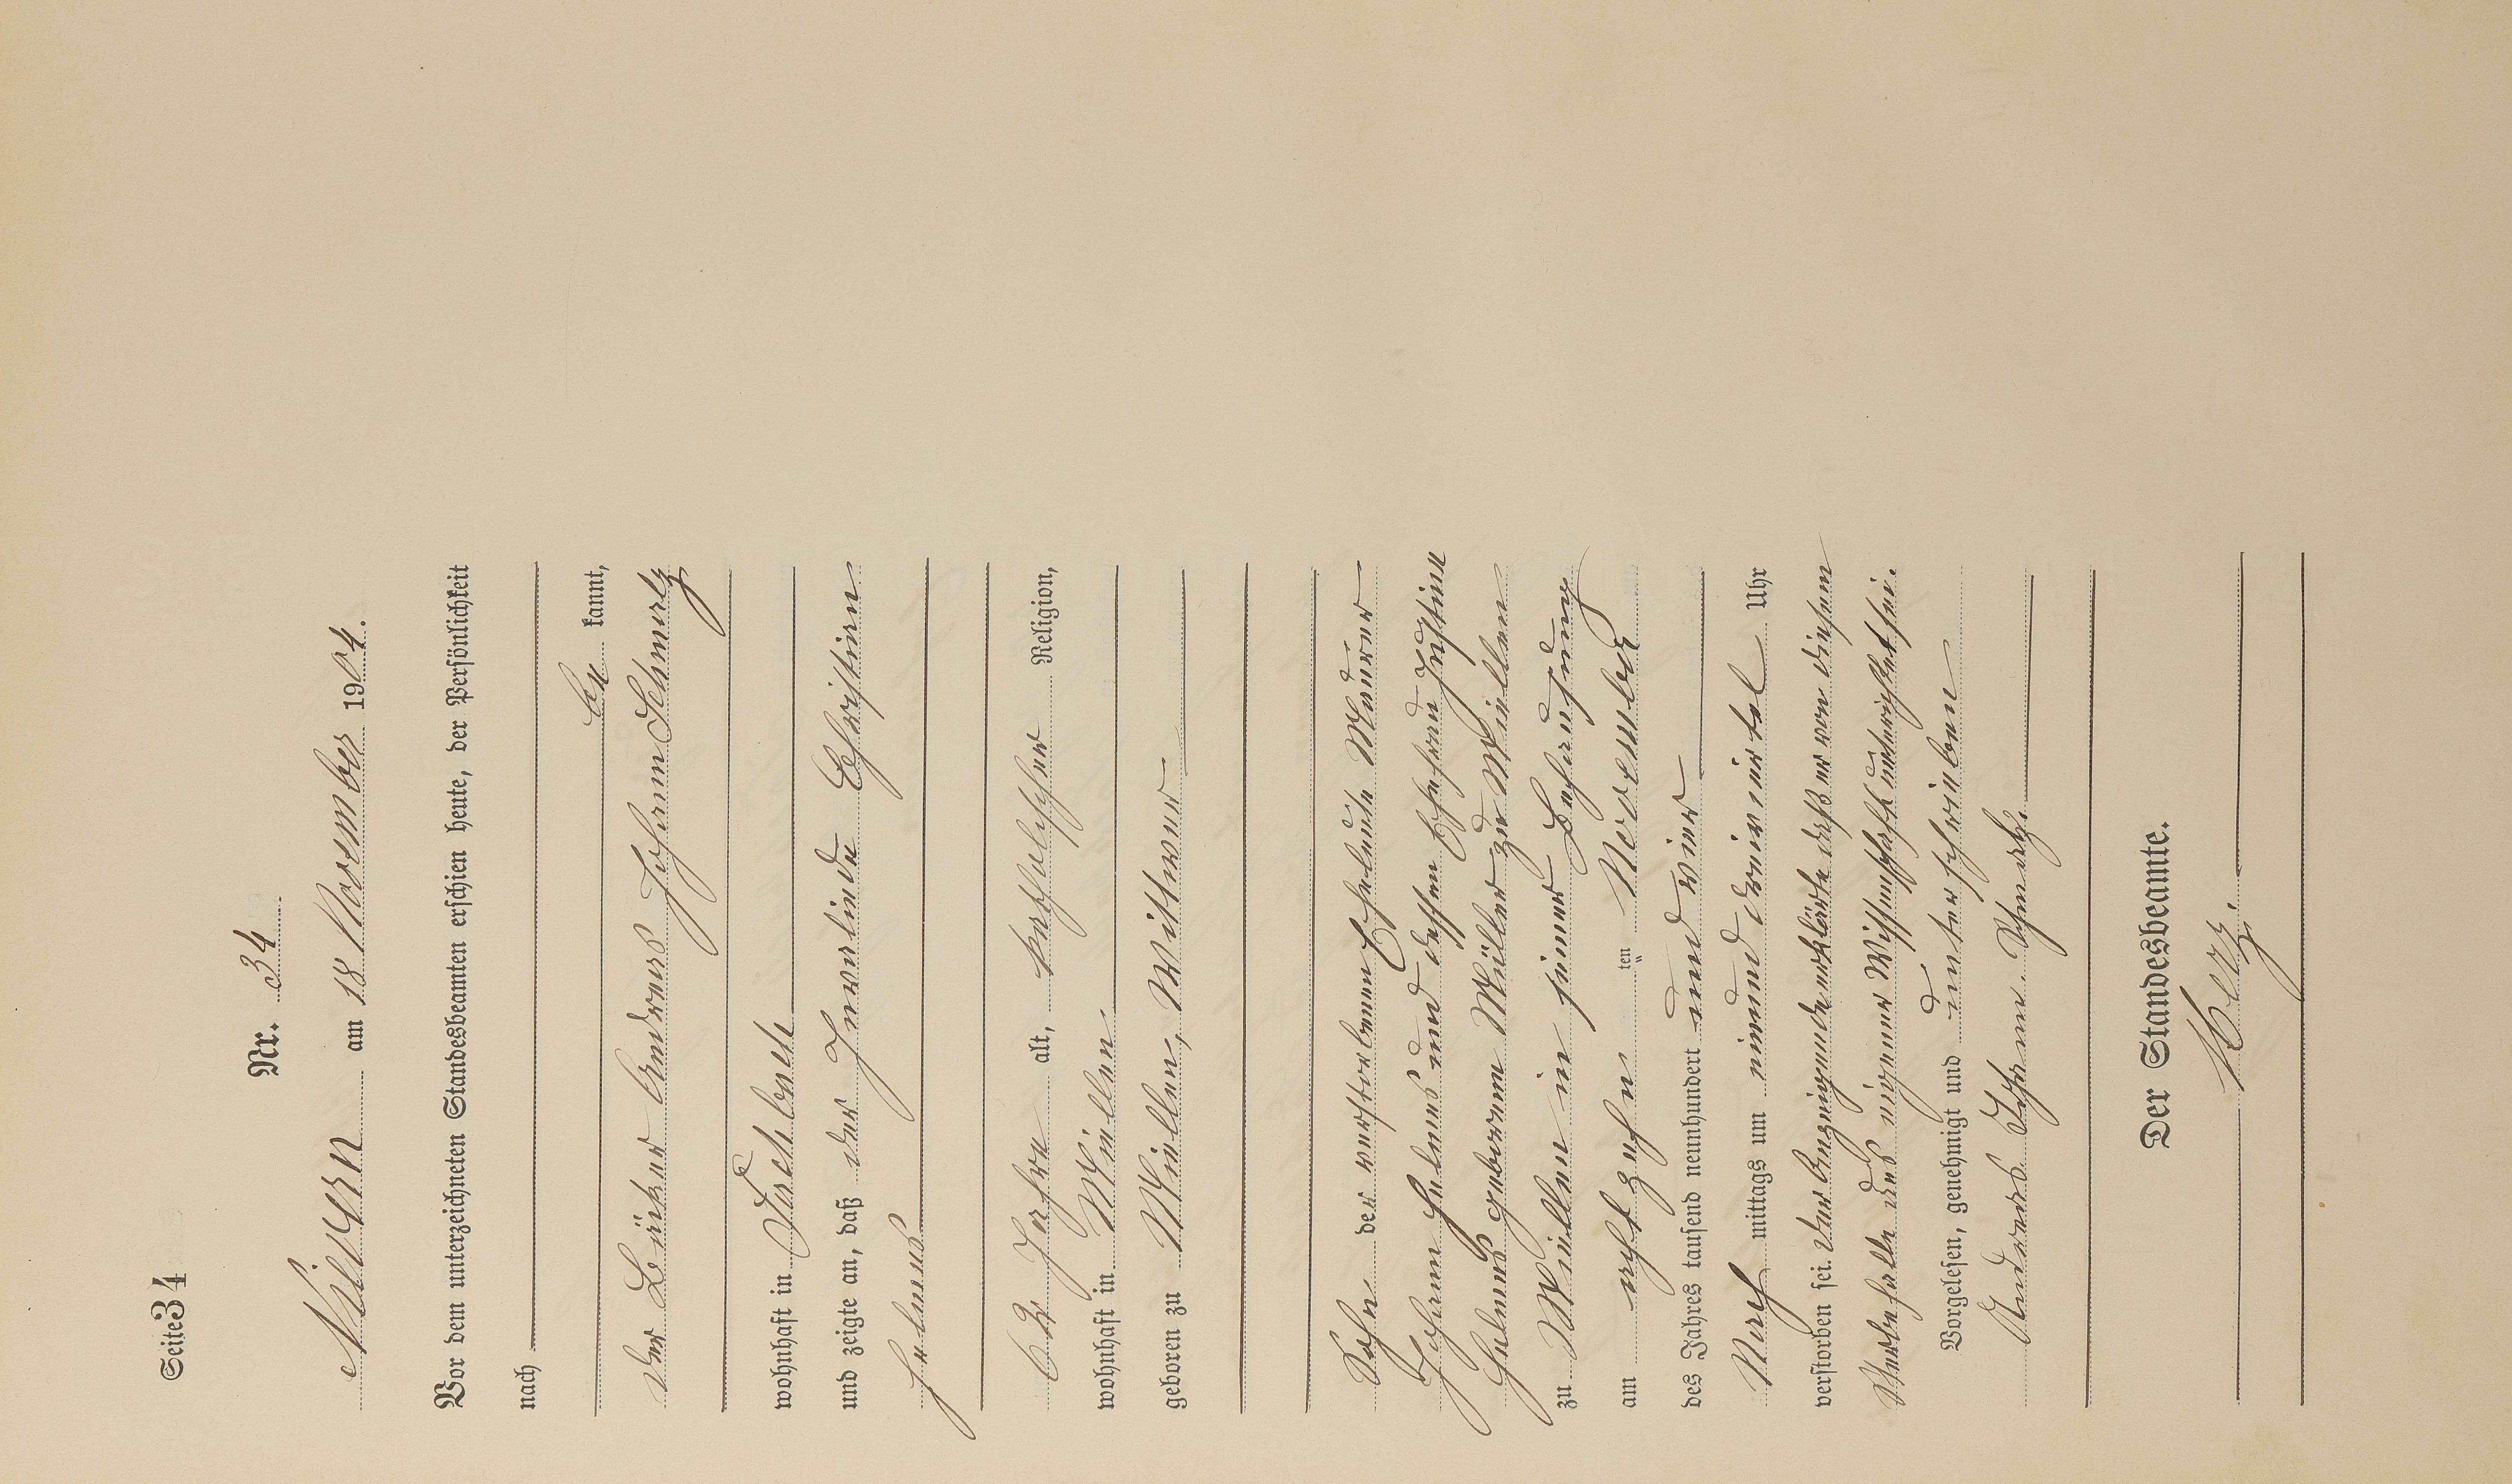 Seite 34
Nr. 34
Nievern am 18 November 1904.
Vor dem unterzeichneten Standesbeamten erschien heute, der Persönlichkeit
nach
be kannt,
der Bäcker Andreas Johann Schmertz
wohnhaft in Fachbach
und zeigte an, daß der Invalide Christian
62 Jahre alt, katholischer Religion,
wohnhaft in Miellen
geboren zu Miellen, Wittwer
Sohn der verstorbenen Eheleute Maurer
Johann und dessen Ehefrau Justine
geborene Müller zu Miellen
zu Miellen in seiner Behausung
am achtzehn ten November
des Jahres tausend neunhundert und vier
Nach mittags um einund dreiviertel Uhr
verstorben sei. Der Anzeigende erklärte daß er von diesem
Sterbefalle aus eigener Wissenschaft unterrichtet sei.
Vorgelesen, genehmigt und unterschrieben
Andreas Johann
Der Standesbeamte.